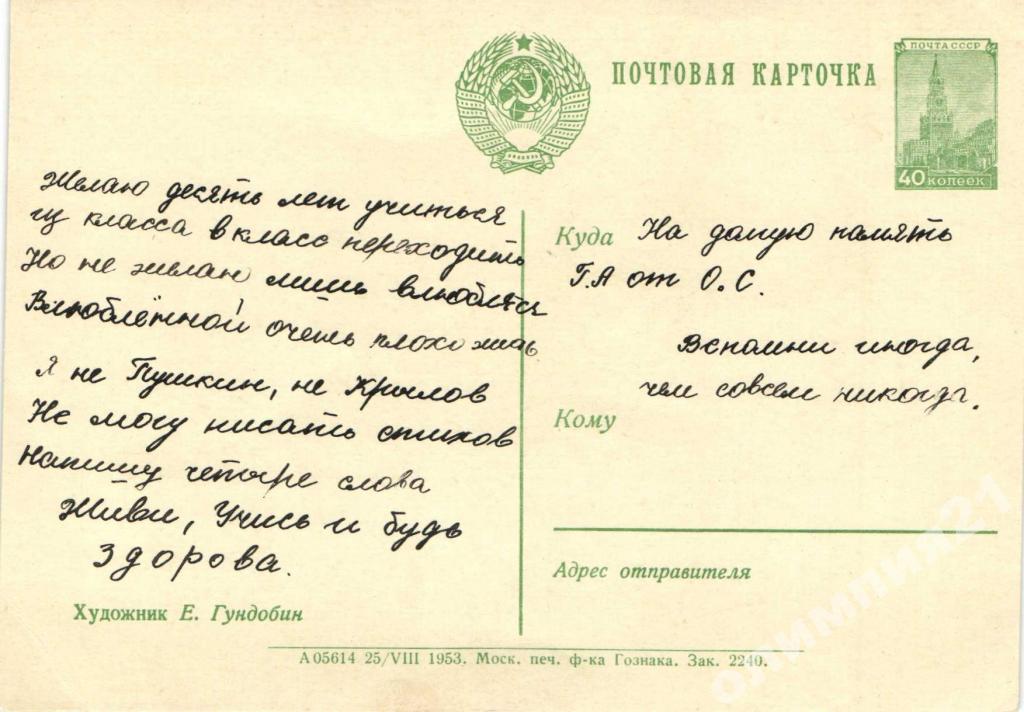 ПОЧТОВАЯ КАРТОЧКА
ПОЧТА СССР
40 КОПЕЕК
Желаю десять лет учиться
из класса в класс переходить
Но не желаю лишь влюбляться
Влюблённой очень плохо жить
Я не Пушкин, не Крылов
Не могу писать стихов
Напишу четыре слова
Живи, Учись и будь
здорова.
Художник Е. Гундобин
Куда На долгую память
Г.А от О.С.
Вспомни иногда,
чем совсем никогда.
Кому
Адрес отправителя
А 05614 25/VIII 1953. Моск. печ. ф-ка Гознака. Зак. 2240.
олимпия21